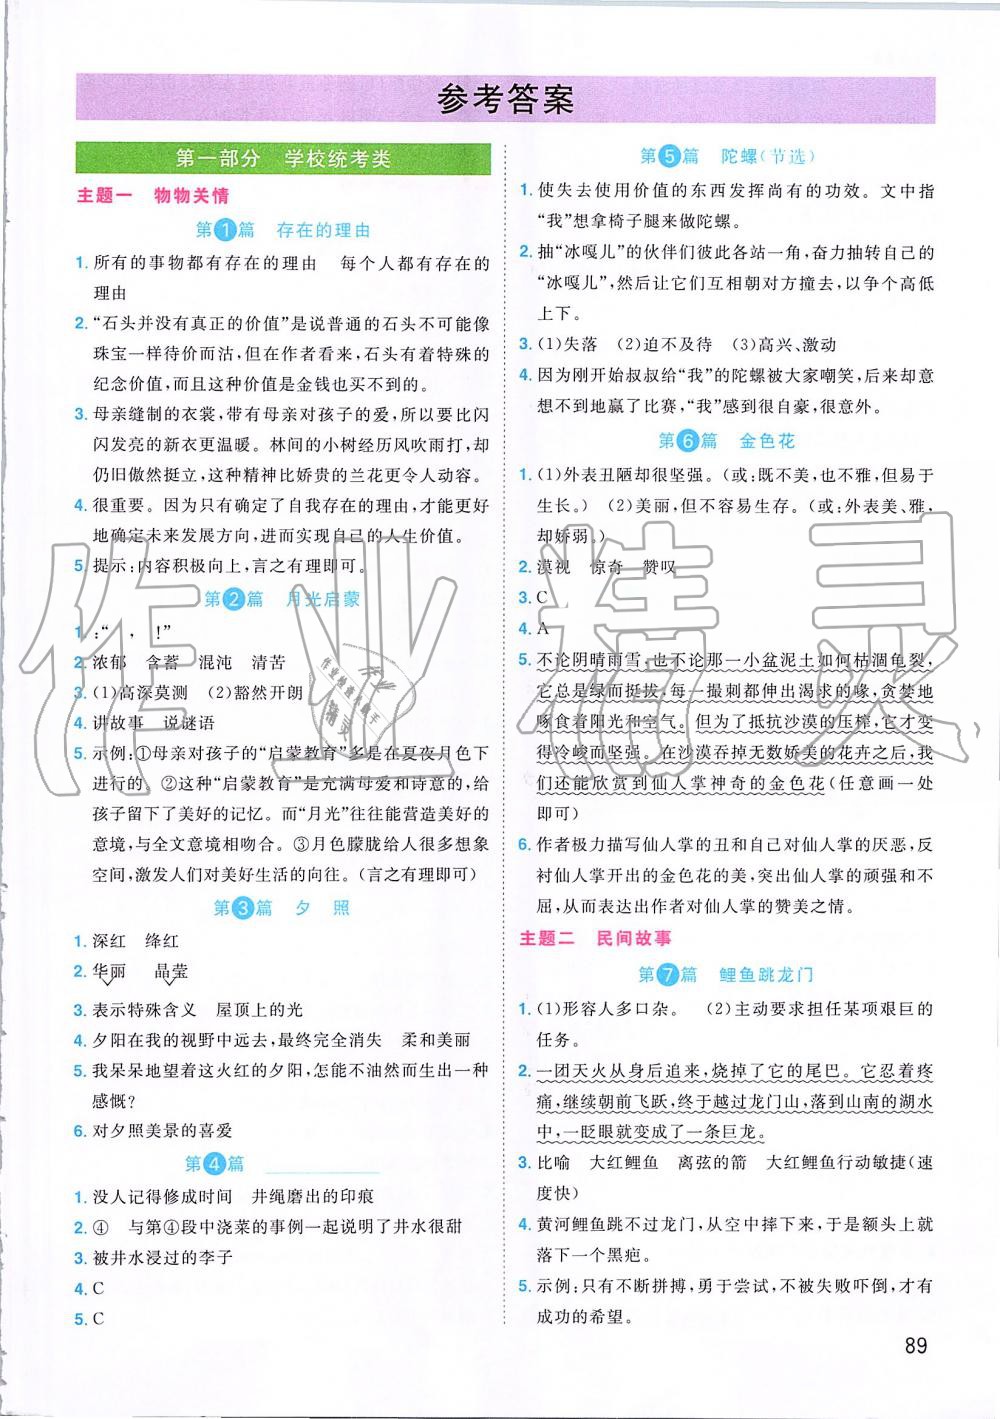 参考答案
第一部分 学校统考类
主题一 物物关情
第1篇 存在的理由
1. 所有的事物都有存在的理由 每个人都有存在的
理由
2. “石头并没有真正的价值”是说普通的石头不可能像
珠宝一样待价而沽,但在作者看来,石头有着特殊的
纪念价值,而且这种价值是金钱也买不到的。
3. 母亲缝制的衣裳,带有母亲对孩子的爱,所以要比闪
闪发亮的新衣更温暖。林间的小树经历风吹雨打,却
仍旧傲然挺立,这种精神比娇贵的兰花更令人动容。
4. 很重要。因为只有确定了自我存在的理由,才能更好
地确定未来发展方向,进而实现自己的人生价值。
5. 提示:内容积极向上,言之有理即可。
第2篇 月光启蒙
1. :“ , !”
2. 浓郁 含蓄 混沌 清苦
3. (1)高深莫测 (2)豁然开朗
4. 讲故事 说谜语
5. 示例:①母亲对孩子的“启蒙教育”多是在夏夜月色下
进行的 ②这种“启蒙教育”是充满母爱和诗意的,给
孩子留下了美好的记忆。而“月光”往往能营造美好的
意境,与全文意境相吻合。③月色朦胧给人很多想象
空间,激发人们对美好生活的向往。(言之有理即可)
第3篇 夕 照
1. 深红 绛红
2. 华丽 晶莹
3. 表示特殊含义 屋顶上的光
4. 夕阳在我的视野中远去,最终完全消失 柔和美丽
5. 我呆呆地望着这火红的夕阳,怎能不油然而生出一种
感慨?
6. 对夕照美景的喜爱
第4篇
1. 没人记得修成时间 井绳磨出的印痕
2. ④ 与第④段中浇菜的事例一起说明了井水很甜
3. 被井水浸过的李子
4. C
5. C
第5篇 陀螺(节选)
1. 使失去使用价值的东西发挥尚有的功效。文中指
“我”想拿椅子腿来做陀螺。
2. 抽“冰嘎儿”的伙伴们彼此各站一角,奋力抽转自己的
“冰嘎儿”,然后让它们互相朝对方撞去,以争个高低
上下。
3. (1)失落 (2)迫不及待 (3)高兴、激动
4. 因为刚开始叔叔给“我”的陀螺被大家嘲笑,后来却意
想不到地赢了比赛,“我”感到很自豪,很意外。
第6篇 金色花
1. (1)外表丑陋却很坚强。(或:既不美,也不雅,但易于
生长。) (2)美丽,但不容易生存。(或:外表美、雅,
却娇弱。)
2. 漠视 惊奇 赞叹
3. C
4. A
5. 不论阴晴雨雪,也不论那一小盆泥土如何枯涸龟裂,
它总是绿而挺拔,每一撮刺都伸出渴求的喙,贪婪地
啄食着阳光和空气。 但为了抵抗沙漠的压榨,它才变
得冷峻而坚强。 在沙漠吞掉无数娇美的花卉之后,我
们还能欣赏到仙人掌神奇的金色花(任意画一处
即可)
6. 作者极力描写仙人掌的丑和自己对仙人掌的厌恶,反
衬仙人掌开出的金色花的美,突出仙人掌的顽强和不
屈,从而表达出作者对仙人掌的赞美之情。
主题二 民间故事
第7篇 鲤鱼跳龙门
1. (1)形容人多口杂。 (2)主动要求担任某项艰巨的
任务。
2. 一团天火从身后追来,烧掉了它的尾巴。它忍着疼
痛,继续朝前飞跃,终于越过龙门山,落到山南的湖水
中,一眨眼就变成了一条巨龙。
3. 比喻 大红鲤鱼 离弦的箭 大红鲤鱼行动敏捷(速
度快)
4. 黄河鲤鱼跳不过龙门,从空中摔下来,于是额头上就
落下一个黑疤。
5. 示例:只有不断拼搏,勇于尝试,不被失败吓倒,才有
成功的希望。
89
作业精灵